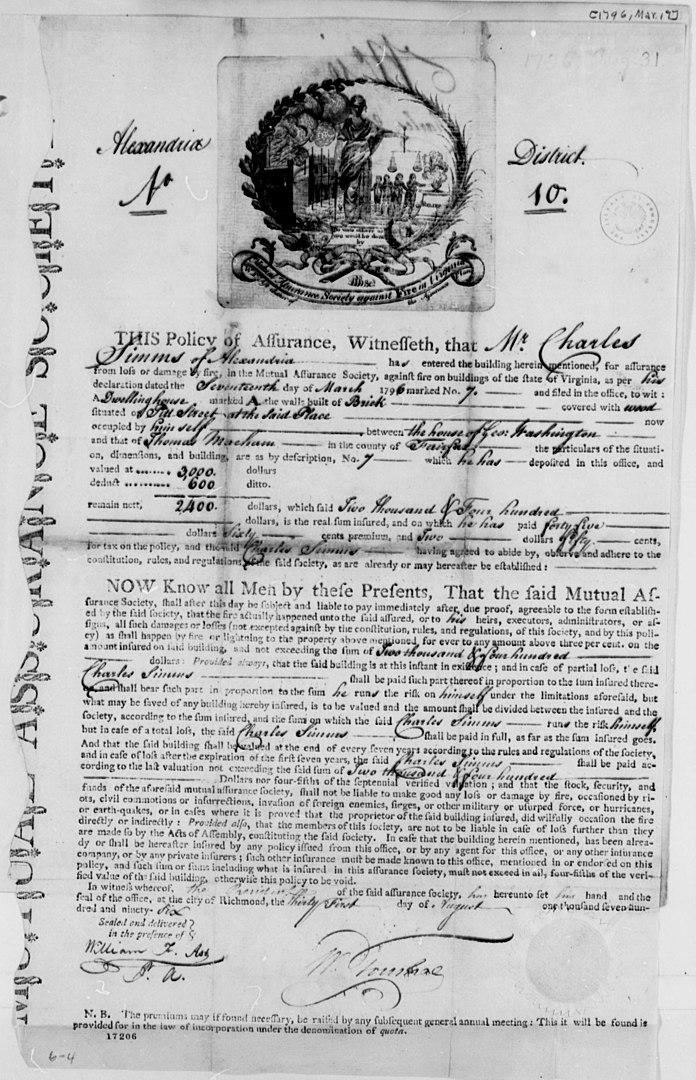 [1796, Mar. 17]
Alexandria District.
No 10.
Assurance Society against Fire on
THIS Policy of Assurance, Witnesseth, that Mr. Charles
Simms of Alexandria has entered the building herein mentioned, for assurance
from loss or damage by fire, in the Mutual Assurance Society, against fire on buildings of the state of Virginia, as per his
declaration dated the Seventeenth day of March 1796 marked No. 7. and filed in the office, to wit:
A Dwelling house marked A the walls built of Brick covered with wood
situated on Pitt Street at the said Place now
occupied by him self between the house of Geo: Washington
and that of Thomas in the county of Fairfax the particulars of the situati-
on, dimensions, and building, are as by description, No. 7 which he has deposited in this office, and
valued at ........ 3,000. dollars
deduct ........ 600 ditto.
remain nett, 2,400. dollars, which said Two thousand & Four hundred
dollars, is the real sum insured, and on which he has paid forty five
dollars Sixty cents premium, and Two dollars Fifty cents,
for tax on the policy, and the said Charles Simms having agreed to abide by, observe and adhere to the
constitution, rules, and regulations of the said society, as are already or may hereafter be established:
NOW Know all Men by these Presents, That the said Mutual As-
surance Society, shall after this day be subject and liable to pay immediately after due proof, agreeable to the form establish-
ed by the said society, that the fire actually happened unto the said assured, or to his heirs, executors, administrators, or as-
signs, all such damages or losses (not excepted against by the constitution, rules, and regulations, of this society, and by this poli-
cy) as shall happen by fire or lightning to the property above mentioned, for ever to any amount above three per cent. on the
amount insured on said building, and not exceeding the sum of Two thousand & four hundred
dollars: Provided always, that the said building is at this instant in existence; and in case of partial loss, the said
Charles Simms shall be paid such part thereof in proportion to the sum insured there-
by, and shall bear such part in proportion to the sum he runs the risk on himself under the limitations aforesaid, but
what may be saved of any building hereby insured, is to be valued and the amount shall be divided between the insured and the
society, according to the sum insured, and the sum on which the said Charles Simms runs the risk himself,
but in case of a total loss, the said Charles Simms shall be paid in full, as far as the sum insured goes.
And that the said building shall be valued at the end of every seven years according to the rules and regulations of the society,
and in case of loss after the expiration of the first seven years, the said Charles Simms shall be paid ac-
cording to the last valuation not exceeding the said sum of Two thousand & four hundred
Dollars nor four-fifths of the septennial verified valuation; and that the stock, security, and
funds of the aforesaid mutual assurance society, shall not be liable to make good any loss or damage by fire, occasioned by ri-
ots, civil commotions or insurrections, invasion of foreign enemies, sieges, or other military or usurped force, or hurricanes,
or earth-quakes, or in cases where it is proved that the proprietor of the said building insured, did wilfully occasion the fire
directly or indirectly: Provided also, that the members of this society, are not to be liable in case of loss further than they
are made so by the Acts of Assembly, constituting the said society. In case that the building herein mentioned, has been alrea-
dy or shall be hereafter insured by any policy issued from this office, or by any agent for this office, or any other insurance
company, or by any private insurers; such other insurance must be made known to this office, mentioned in or endorsed on this
policy, and such sum or sums including what is insured in this assurance society, must not exceed in all, four-fifths of the veri-
fied value of the said building, otherwise this policy to be void.
In witness whereof, the President of the said assurance society, has hereunto set his hand and the
seal of the office, at the city of Richmond, the thirty First day of August one thousand seven hun-
dred and ninety-six
Sealed and delivered
in the presence of
William F. Ast
P. A.
N. B. The premiums may if found necessary, be raised by any subsequent general annual meeting: This it will be found is
provided for in the law of incorporation under the denomination of quota.
17206
6-4
MUTUAL ASSURANCE SOCIETY